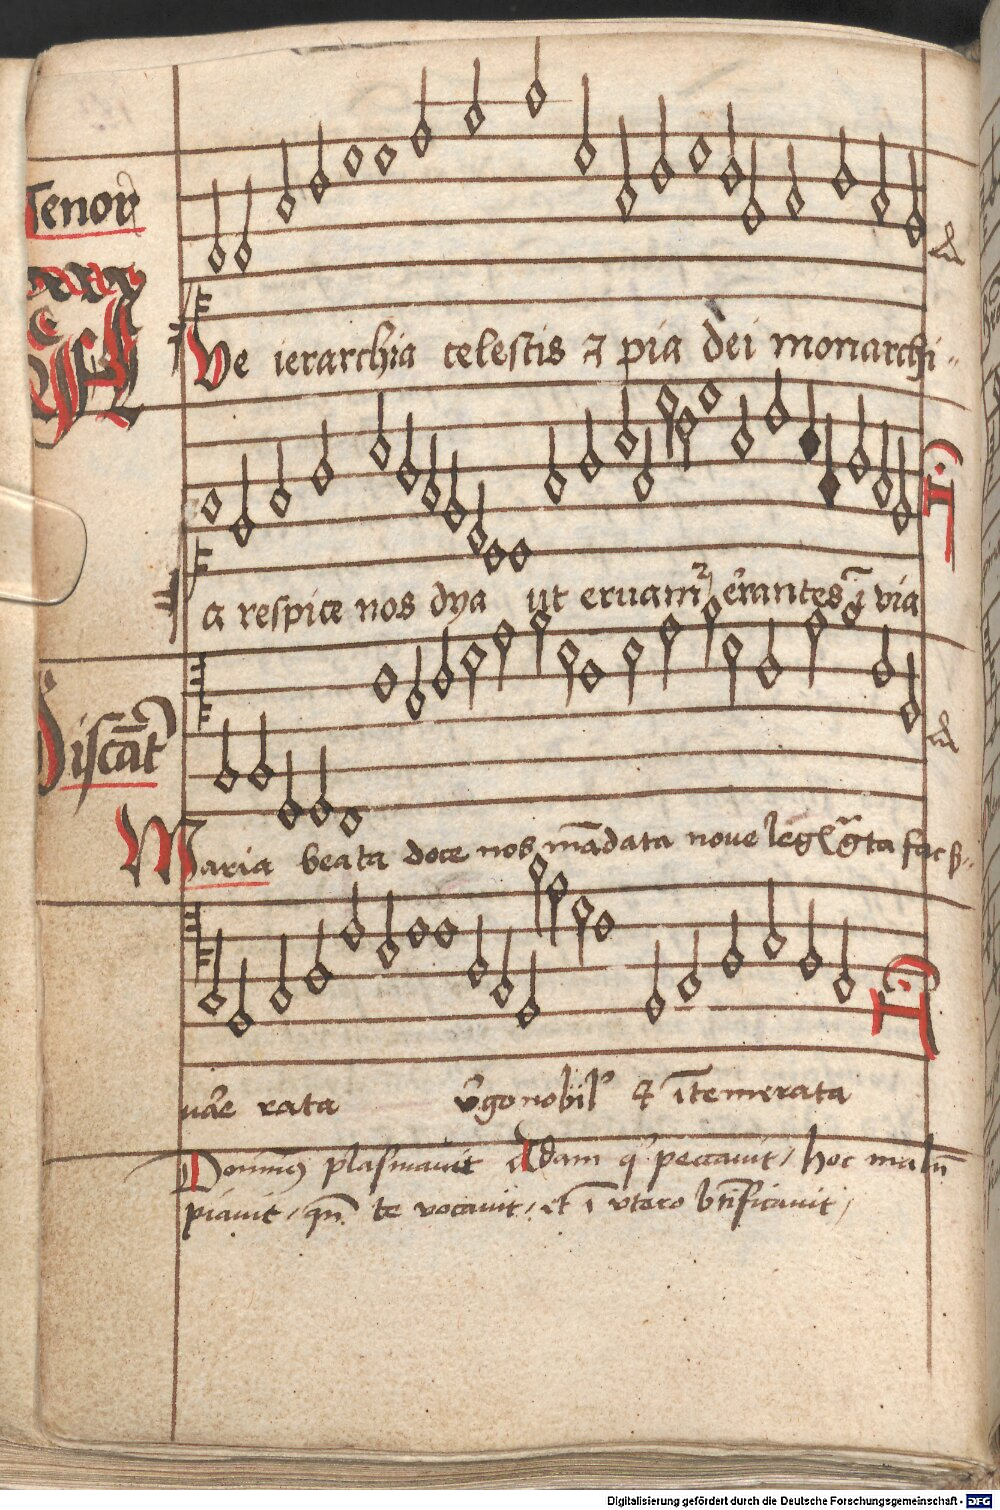 Tenor
Ve ierarchia celestis et pia dei monarchi
a respice nos dya ut eruamur errantes i via
Discant
Maria beata doce nos mandata nove legis grata fac
rata virgo nobil et itemerata
Dominus plasmavit Adam q peccavit / hoc malu
piavit / qn te vocavit / et i utero btificavit /
Digitalisierung gefördert durch die Deutsche Forschungsgemeinschaft - DFG